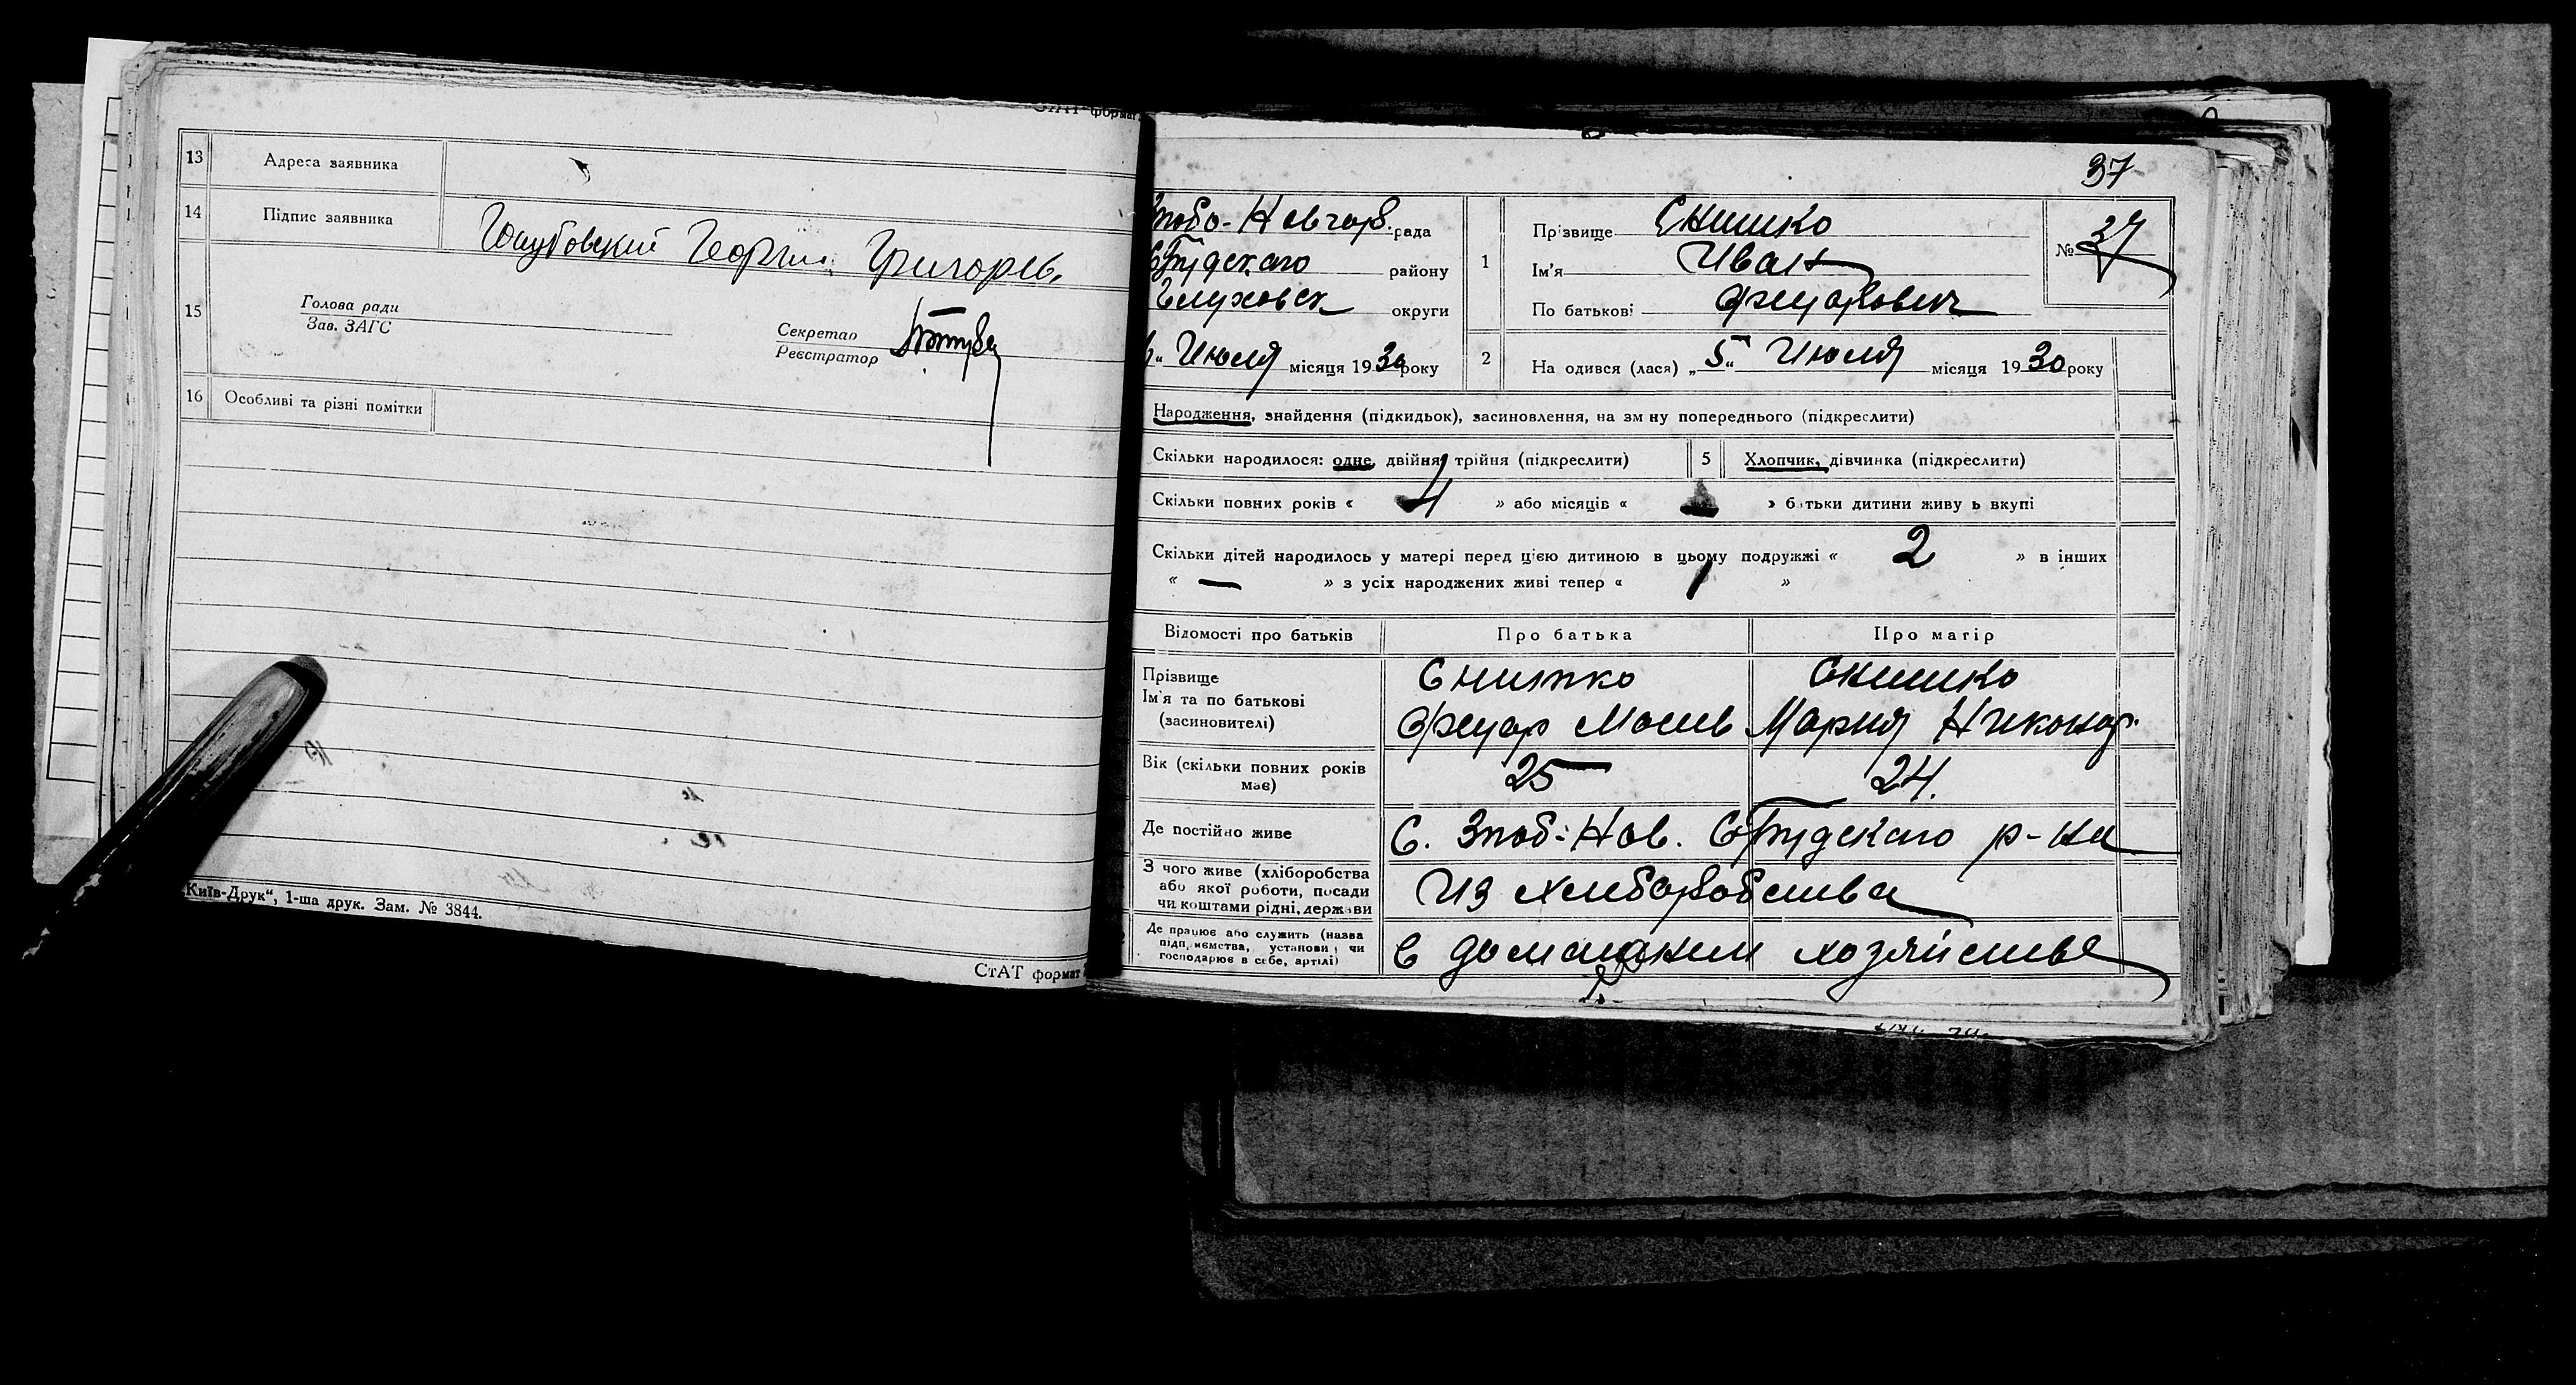 13 Адреса заявника
14 Підпис заявника
Григорьев
15 Голова ради
Зав. ЗАГС
Секретар
Реєстратор
16 Особливі та різні помітки
"Київ-Друк", 1-ша друк. Зам. № 3844.
СтАТ формат
37
Зноб-Новгор. рада
району
Глуховск округи
Июля місяця 1930 року
1 Прізвище Снитко
Ім'я Иван
По батькові
№ 37
2 На одився (лася) „5" Июля місяця 1930 року
Народження, знайдення (підкидьок), засиновлення, на зм ну попереднього (підкреслити)
Скільки народилося: одне, двійня, трійня (підкреслити) 5 Хлопчик, дівчинка (підкреслити)
Скільки повних років « 4 » або місяців « » батьки дитини живу ь вкупі
Скільки дітей народилось у матері перед цією дитиною в цьому подружжі « 2 » в інших
« — » з усіх народжених живі тепер « 1 »
Відомості про батьків Про батька Про матір
Прізвище
Ім'я та по батькові
(засиновителі)
Снитко Снитко
Мария Никонор.
Вік (скільки повних років має) 25 24.
Де постійно живе С. Зноб-Нов. р-на
З чого живе (хліборобства
або якої роботи, посади
чи коштами рідні, держави
Из хлеборобства
Де працює або служить (назва
підприємства, установи чи
господарює в себе, артілі)
В домашнем хозяйстве